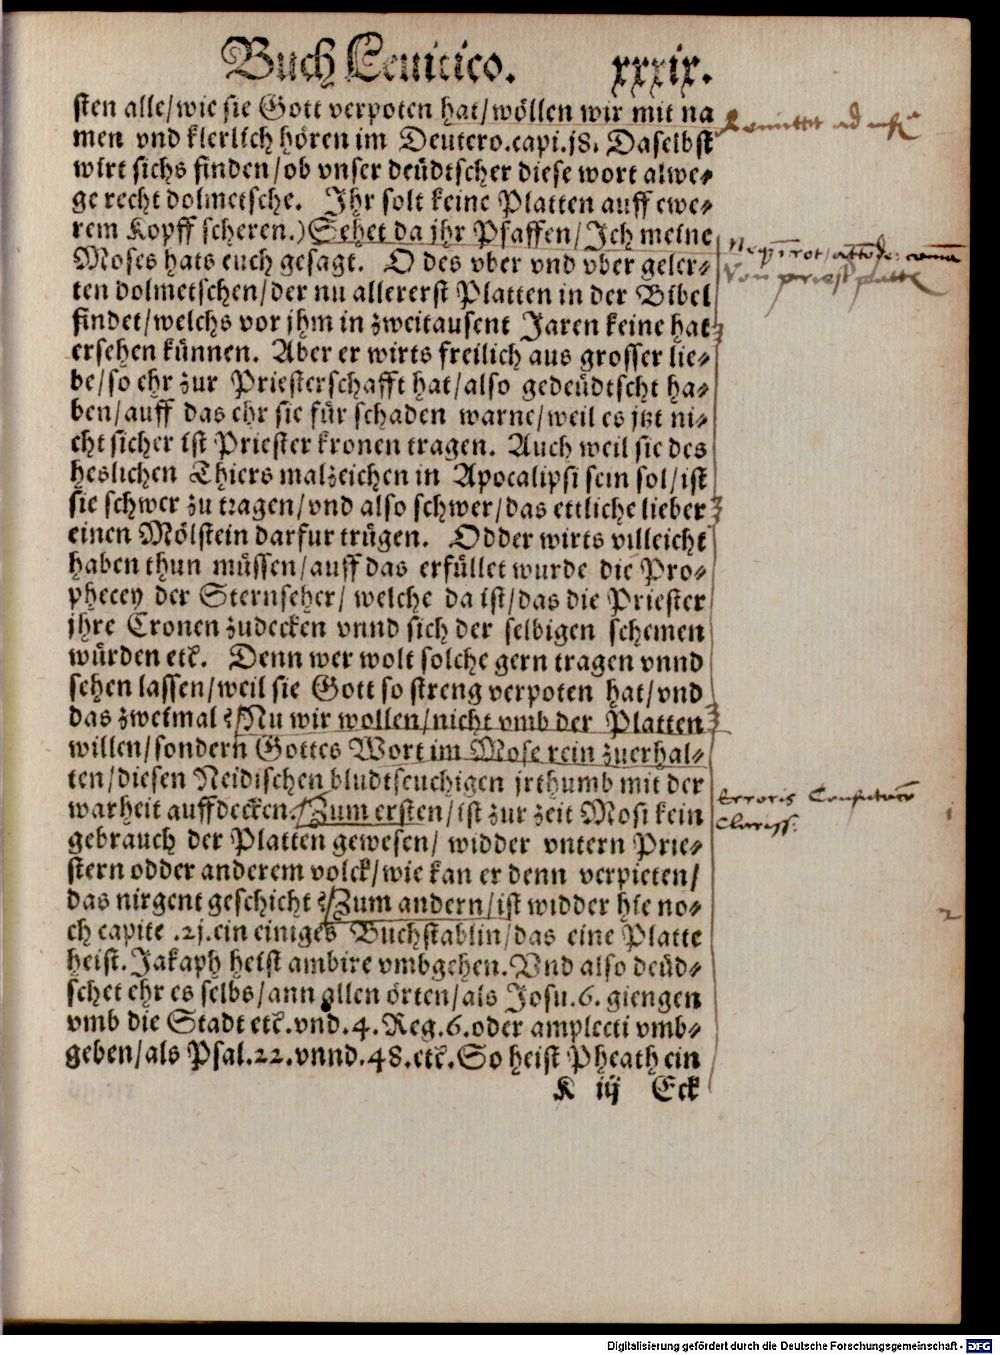 Buch Leuitico. xxxix.
sten alle/wie sie Gott verpoten hat/wöllen wir mit na
men vnd klerlich hören im Deutero.capi.j8. Daselbst
wirt sichs finden/ob vnser deüdtscher diese wort alwe⸗
ge recht dolmetsche. Jhr solt keine Platten auff ewe⸗
rem Kopff scheren.) Sehet da jhr Pfaffen/Jch meine
Moses hats euch gesagt. O des vber vnd vber geler⸗
ten dolmetschen/der nu allererst Platten in der Bibel
findet/welchs vor jhm in zweitausent Jaren keine hat
ersehen künnen. Aber er wirts freilich aus grosser lie⸗
be/so ehr zur Priesterschafft hat/also gedeüdtscht ha⸗
ben/auff das ehr sie für schaden warne/weil es jtzt ni⸗
cht sicher ist Priester kronen tragen. Auch weil sie des
heslichen Thiers malzeichen in Apocalipsi sein sol/ist
sie schwer zu tragen/vnd also schwer/das ettliche lieber
einen Mölstein darfur trügen. Odder wirts villeicht
haben thun müssen/auff das erfüllet wurde die Pro⸗
phecey der Sternseher/ welche da ist/das die Priester
jhre Cronen zudecken vnnd sich der selbigen schemen
würden etc. Denn wer wolt solche gern tragen vnnd
sehen lassen/weil sie Gott so streng verpoten hat/vnd
das zweimal? Nu wir wollen/nicht vmb der Platten
willen/sondern Gottes Wort im Mose rein zuerhal⸗
ten/diesen Neidischen bludtseuchigen jrthumb mit der
warheit auffdecken. Zum ersten/ist zur zeit Mosi kein
gebrauch der Platten gewesen/ widder vntern Prie⸗
stern odder anderem volck/wie kan er denn verpieten/
das nirgent geschicht? Zum andern/ist widder hie no⸗
ch capite .2j.ein einiges Buchstablin/das eine Platte
heist. Jakaph heist ambire vmbgehen. Vnd also deüd⸗
schet ehr es selbs/ann allen örten/als Josu.6. giengen
vmb die Stadt etc.vnd.4.Reg.6.oder amplecti vmb⸗
geben/als Psal.22.vnnd.48.etc. So heist Pheath ein
K iij Eck
Von priest platte
Erroris
Digitalisierung gefördert durch die Deutsche Forschungsgemeinschaft - DFG